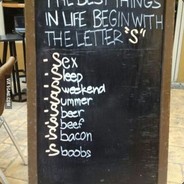 THE BEST THINGS
IN LIFE BEGIN WITH
THE LETTER "S"
Sex
Sleep
Sweekend
Summer
Sbeer
Sbeef
Sbacon
Sboobs